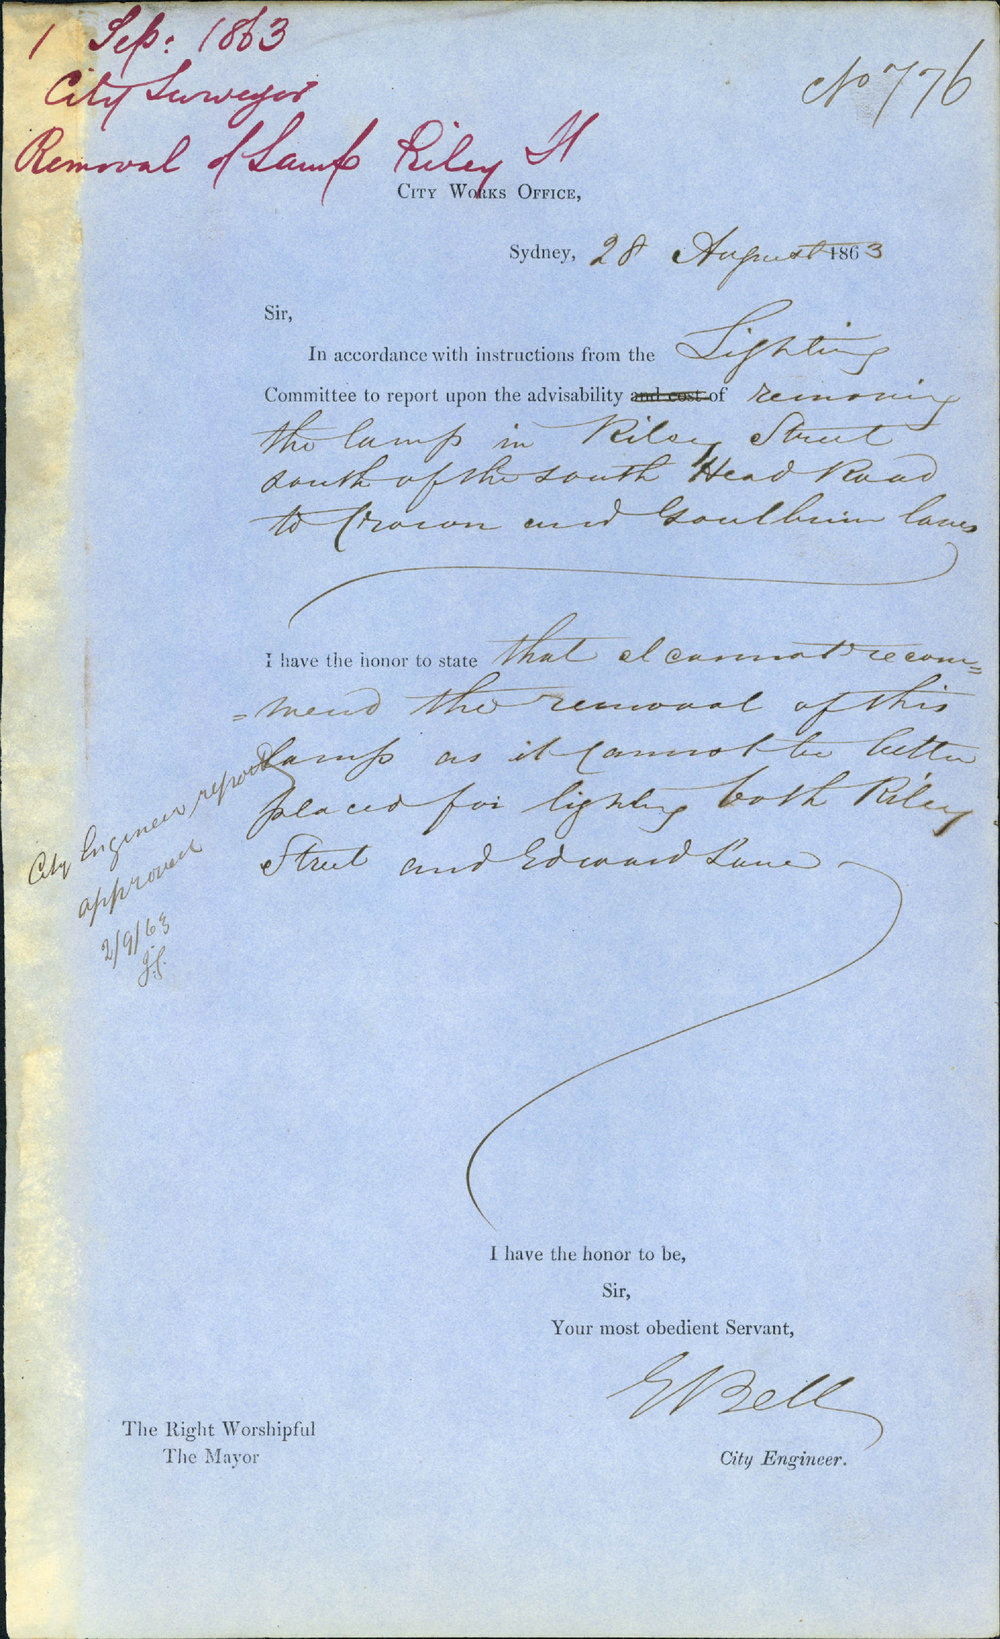 1 Sep: 1863
City Surveyor
Removal of Lamp Riley St
No 776
CITY WORKS OFFICE,
Sydney, 28 August 1863
Sir,
In accordance with instructions from the Lighting
Committee to report upon the advisability and cost of removing
the lamp in Riley Street
south of the South Head Road
to Crown and Goulburn lanes
I have the honor to state that I cannot recom=
=mend the removal of this
lamp as it cannot be better
placed for lighting both Riley
Street and Edward Lane
City Engineer report
approved
2/9/63
I have the honor to be,
Sir,
Your most obedient Servant,
E Bell
The Right Worshipful
The Mayor
City Engineer.